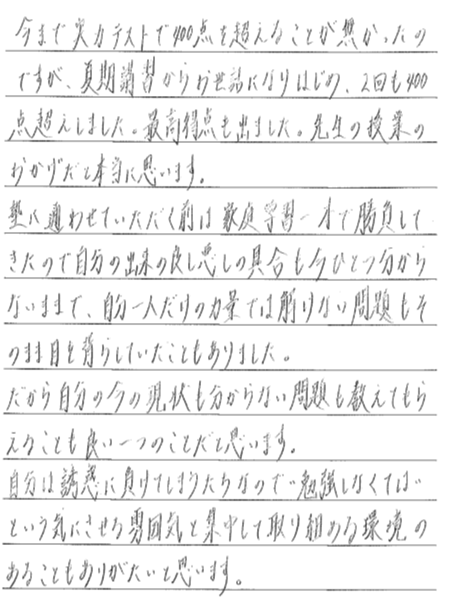 今まで実力テストで400点を超えることが無かったの
ですが、夏期講習からお世話になりはじめ、2回も400
点超えしました。最高得点も出ました。先生の授業の
おかげだと本当に思います。
塾に通わせていただく前は家庭学習一本で勝負して
きたので自分の出来の良し悪しの具合も今ひとつ分から
ないままで、自分一人だけの力量では解けない問題もそ
のまま目を背らしていたこともありました。
だから自分の今の現状も分からない問題も教えてもら
えることも良い一つのことだと思います。
自分は誘惑に負けてしまうたちなので"勉強しなくては"
という気にさせる雰囲気と集中して取り組める環境の
あることもありがたいと思います。